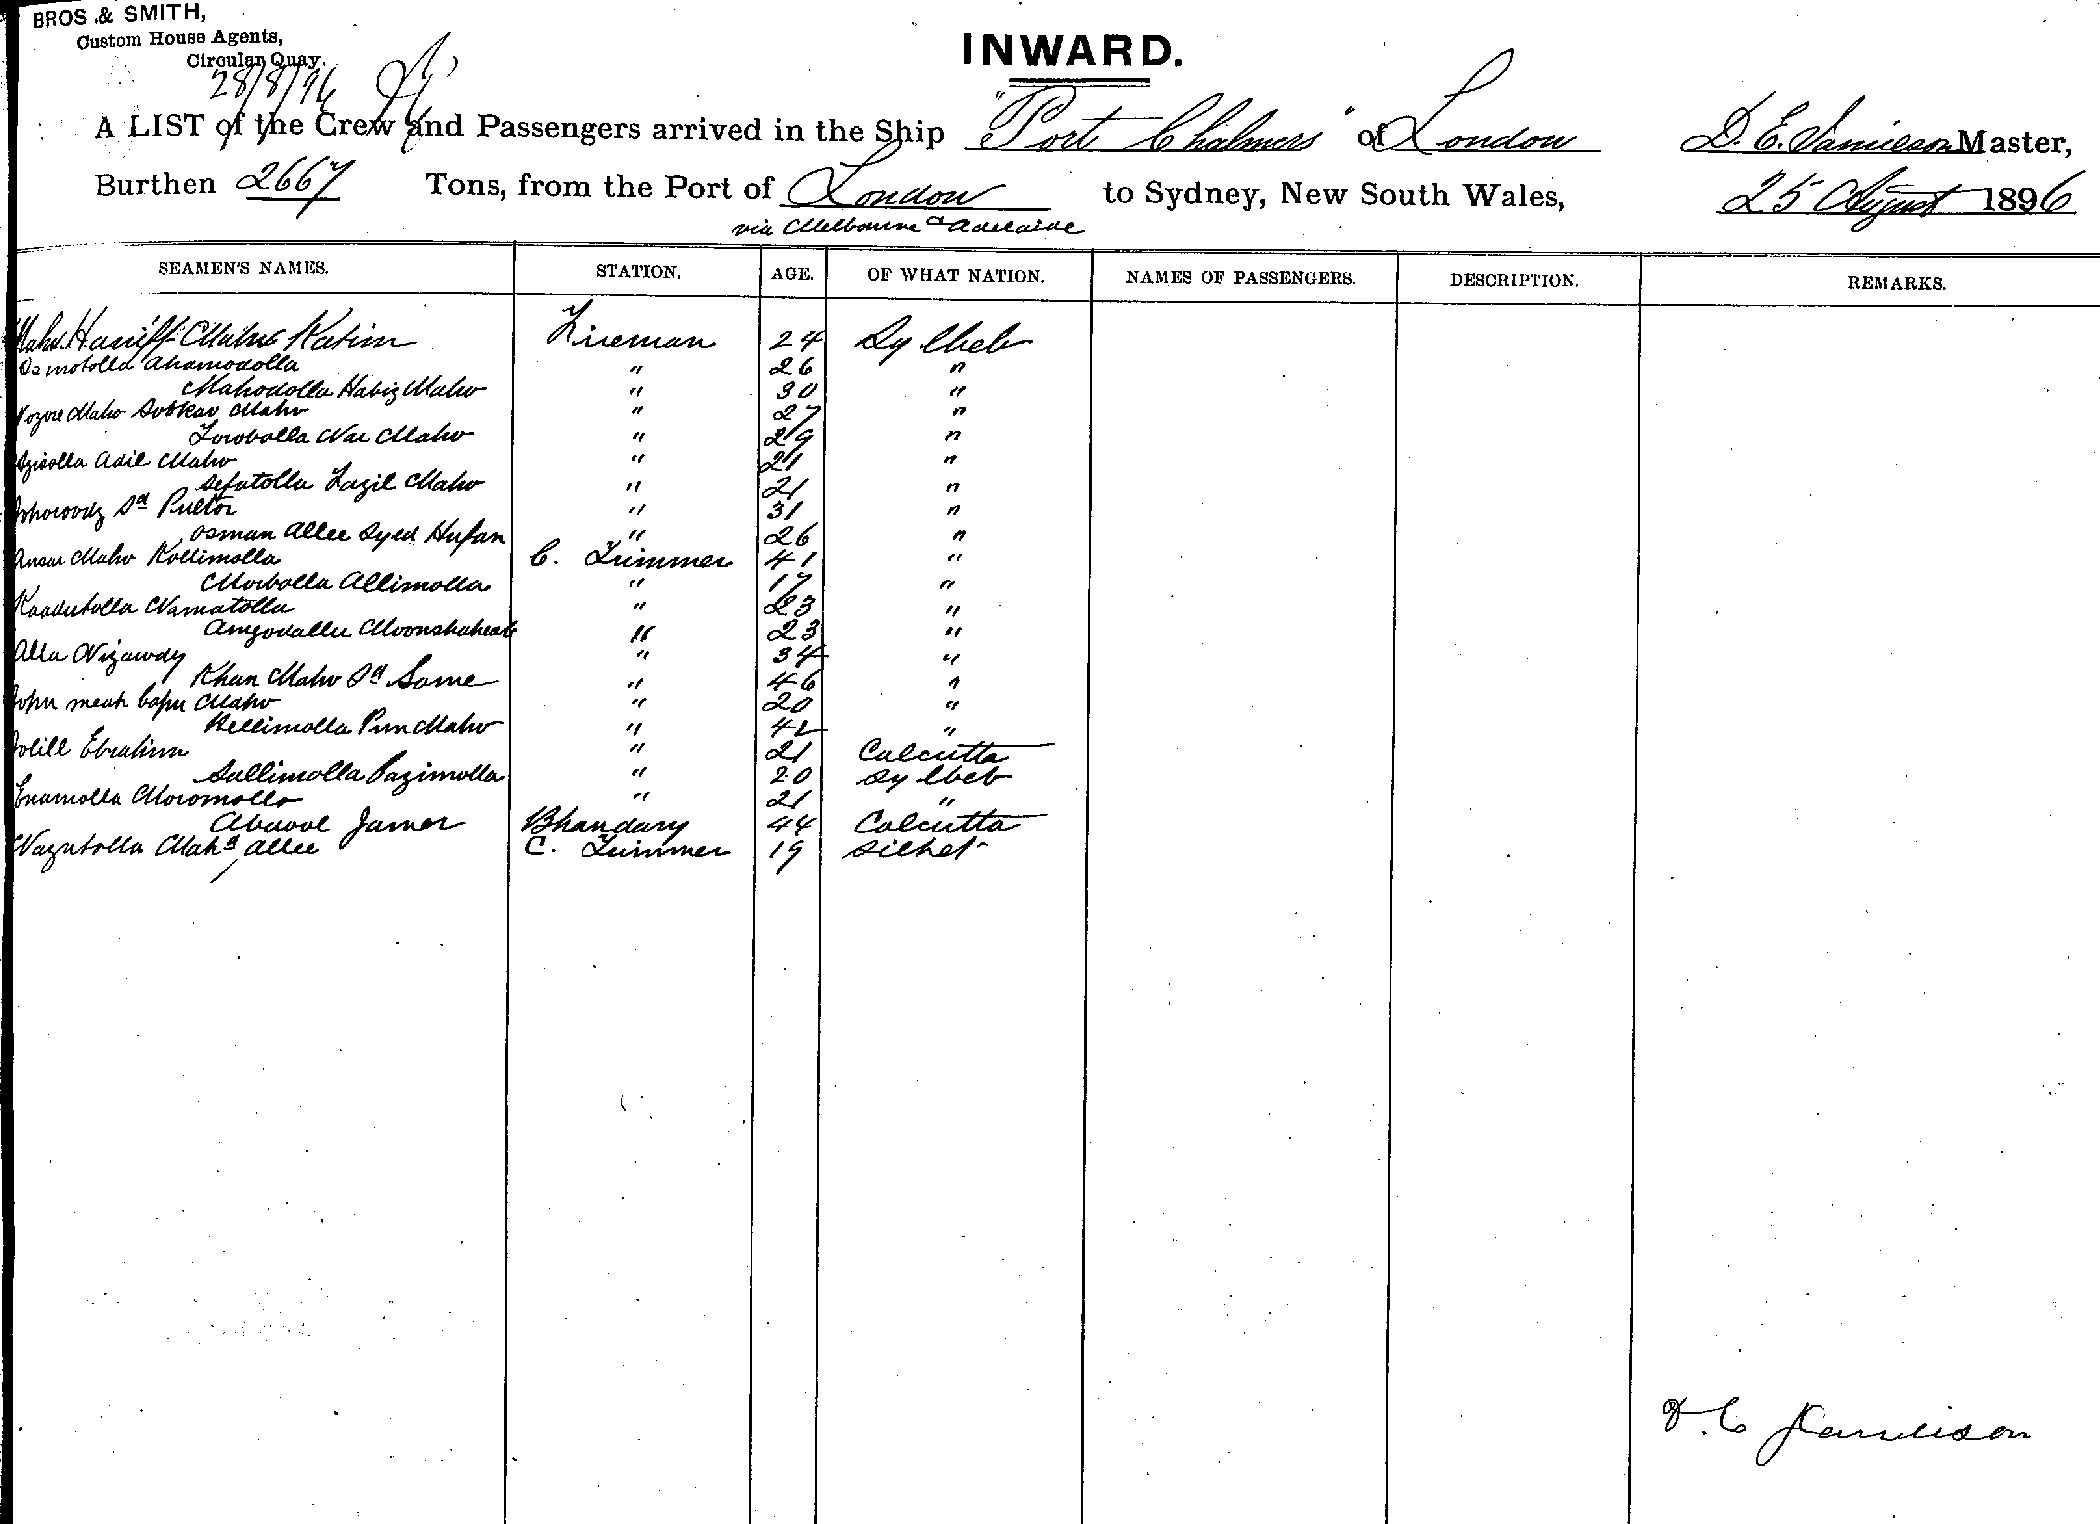 BROS & SMITH,
Custom House Agents,
Circular Quay.
28/8/96
INWARD.
A LIST of the Crew and Passengers arrived in the Ship "Port Chalmers" of London D. E. Jamieson Master,
Burthen 2667 Tons, from the Port of London to Sydney, New South Wales, 25 August 1896
via Melbourne & Adelaide
SEAMEN'S NAMES. STATION. AGE. OF WHAT NATION. NAMES OF PASSENGERS. DESCRIPTION. REMARKS.
Mahd. Haniff Mahd Katim Fireman 24 Sylheb
Osmotolla Ahamodolla " 26 "
Mahodolla Habiz Maho " 30 "
Maho Maho " 27 "
Maho " 29 "
Adil Maho " 21 "
Sefatolla Fazil Maho " 21 "
" 31 "
Osman Allee Syed " 26 "
Ansar Maho Kollimolla C. Trimmer 41 "
Mobolla Allimolla " 17 "
Namatolla " 23 "
" 23 "
Alla Nizamdy " 34 "
Khan Maho Sd Some " 46 "
John meah bapu Maho " 20 "
Kellimolla Pun Maho " 42 "
Jolill Ebrahim " 21 Calcutta
Sallimolla Pazimolla " 20 Sylheb
Enamolla Moromollo " 21 "
Abdool Jamer Bhandary 44 Calcutta
Wazutolla Mahd Allee C. Trimmer 19 Silhet
D. E Jamieson